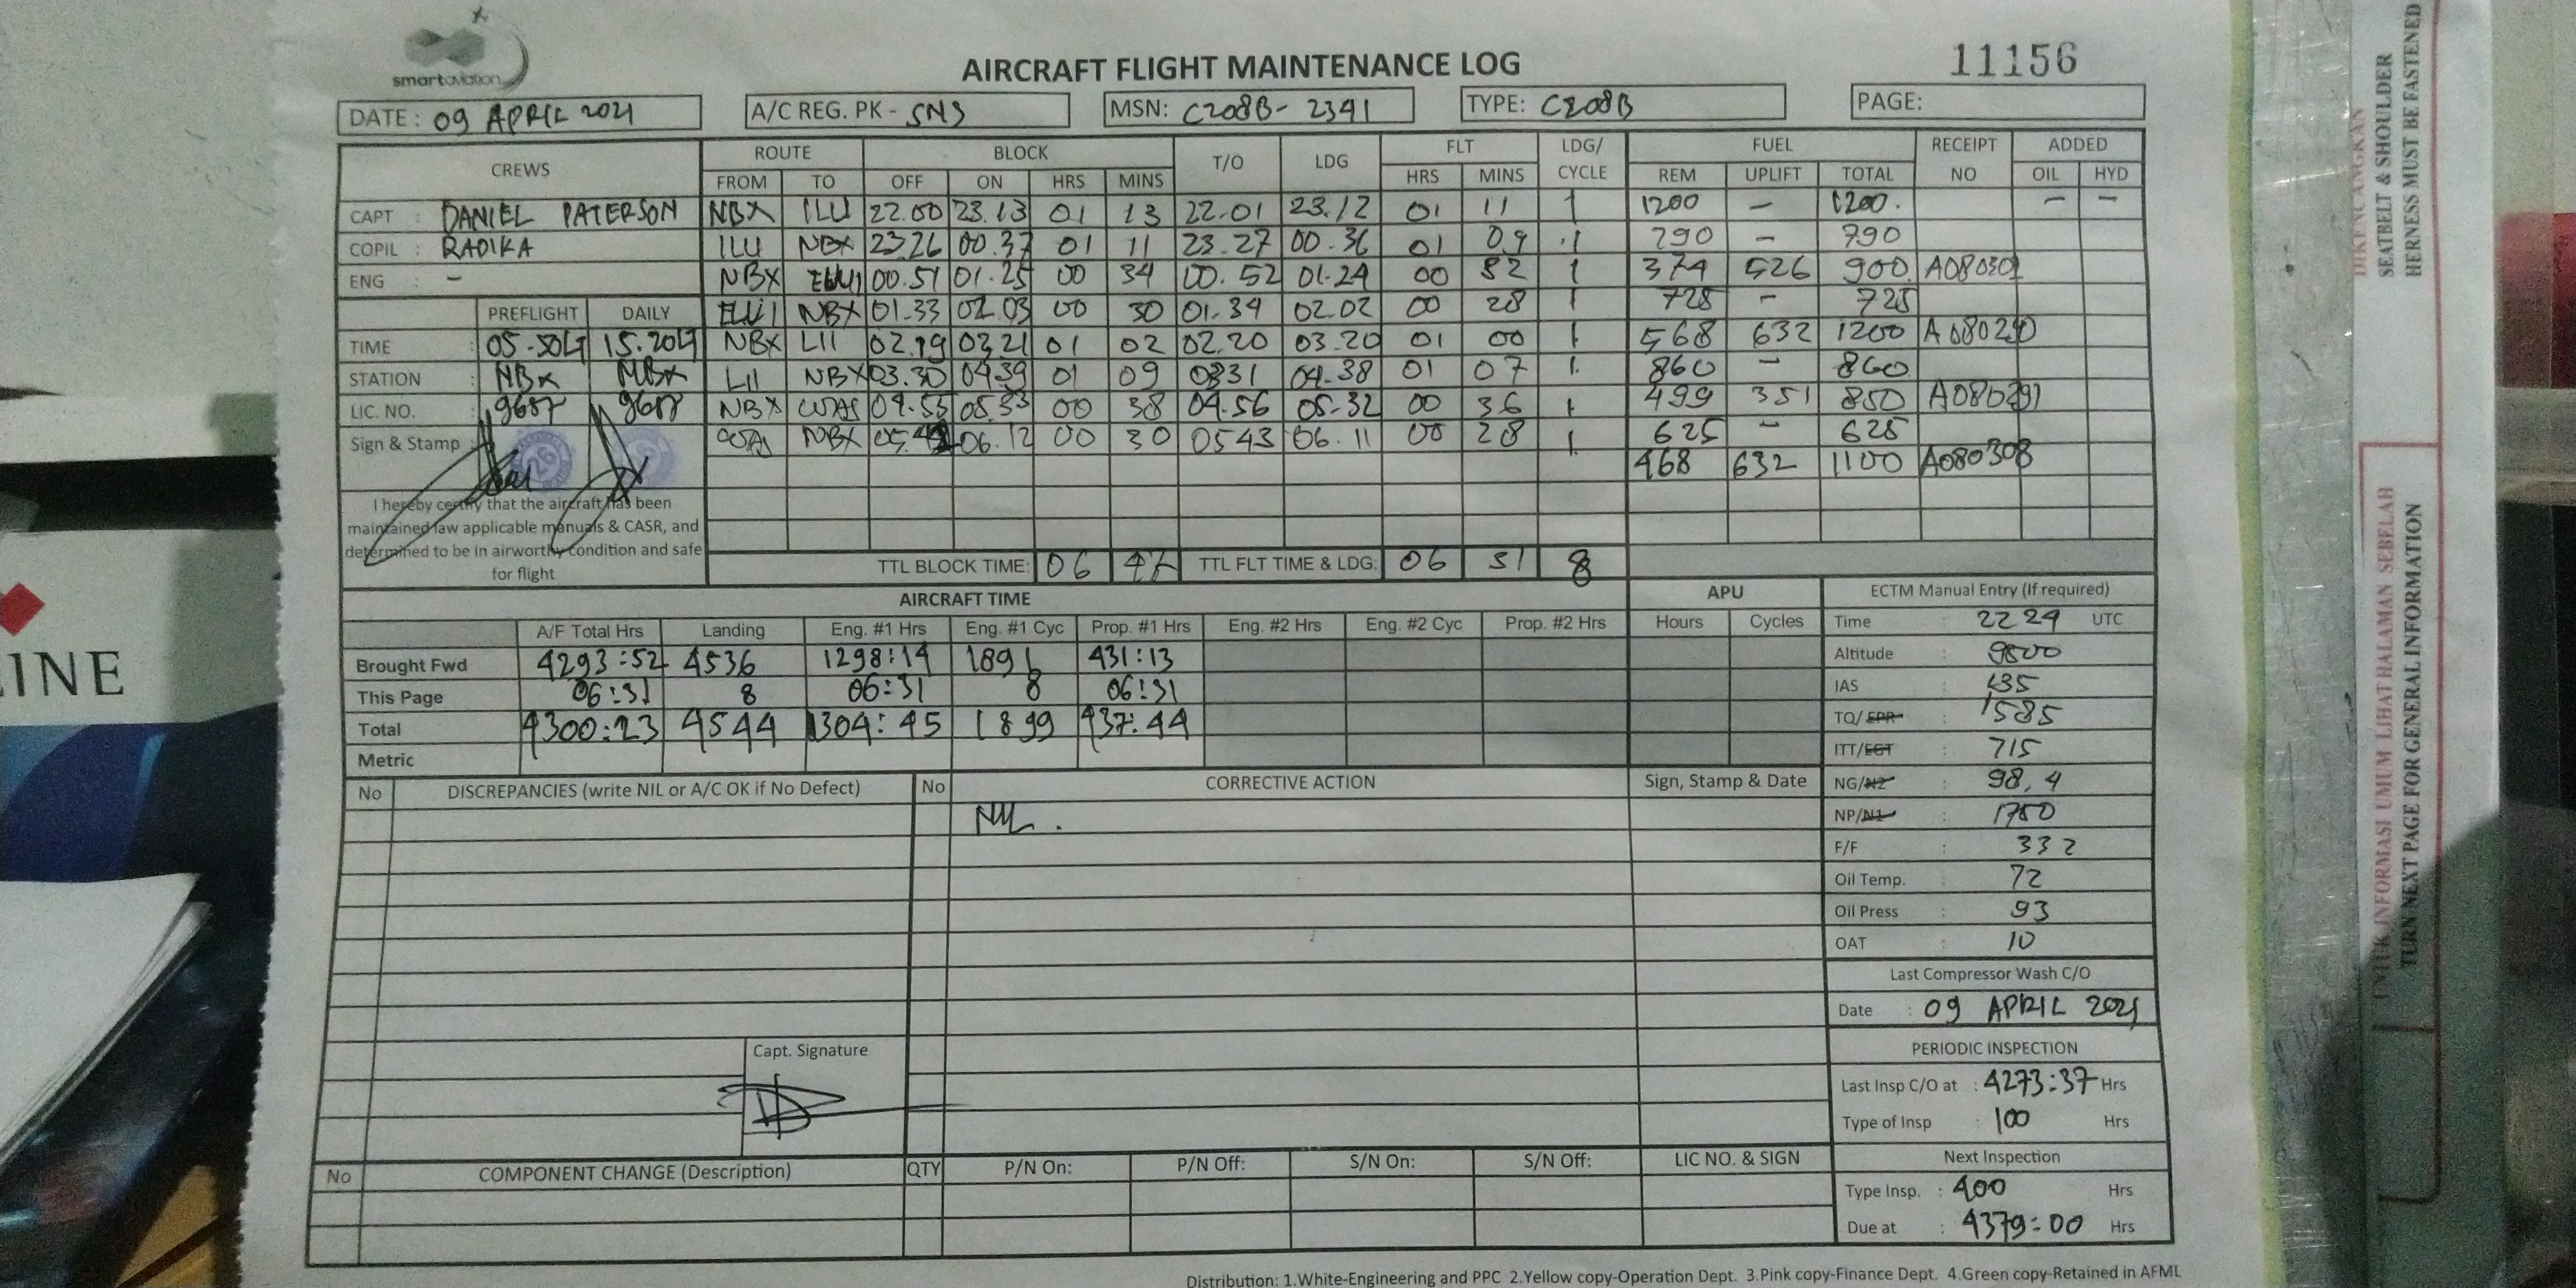 smartaviation
AIRCRAFT FLIGHT MAINTENANCE LOG
11156
DATE : 09 APRIL 2021
A/C REG. PK - SNS
MSN: C208B- 2391
TYPE: C208B
PAGE:
CREWS ROUTE BLOCK T/O LDG FLT LDG/ CYCLE FUEL RECEIPT NO ADDED
FROM TO OFF ON HRS MINS HRS MINS REM UPLIFT TOTAL OIL HYD
CAPT : DANIEL PATERSON NBX ILU 22.00 23.13 01 13 22.01 23.12 01 11 1 1200 – 1200. – –
COPIL : RADIKA ILU NBX 23.26 00.37 01 11 23.27 00.36 01 09 1 790 – 790
ENG : – NBX 00.51 01.25 00 34 00.52 01.24 00 32 1 374 526 900
PREFLIGHT DAILY NBX 01.33 02.03 00 30 01.34 02.02 00 28 1 728 – 728
TIME : 15.20 NBX LII 02.19 03.21 01 02 02.20 03.20 01 00 1 568 632 1200
STATION : NBX NBX LII NBX 03.30 04.39 01 09 0331 04.38 01 07 1 860 – 860
LIC. NO. : 9687 9687 NBX 04.55 05.33 00 38 04.56 05.32 00 36 1 499 351 850
Sign & Stamp : NBX 06.12 00 30 0543 06.11 00 28 1 625 – 625
468 632 1100 A080308
I hereby certify that the aircraft has been
maintained law applicable manuals & CASR, and
determined to be in airworthy condition and safe
for flight
TTL BLOCK TIME: 06 47 TTL FLT TIME & LDG: 06 31 8
AIRCRAFT TIME APU
A/F Total Hrs Landing Eng. #1 Hrs Eng. #1 Cyc Prop. #1 Hrs Eng. #2 Hrs Eng. #2 Cyc Prop. #2 Hrs Hours Cycles
Brought Fwd 4293:52 4536 1298:14 1891 431:13
This Page 06:31 8 06:31 8 06:31
Total 4300:23 4544 1304:45 1899 437:44
Metric
ECTM Manual Entry (If required)
Time : 22 24 UTC
Altitude : 9800
IAS : 135
TQ/EPR : 1585
ITT/EGT : 715
NG/N2 : 98,4
NP/N1 : 1750
F/F : 332
Oil Temp. : 72
Oil Press : 93
OAT : 10
Last Compressor Wash C/O
Date : 09 APRIL 2021
PERIODIC INSPECTION
Last Insp C/O at : 4273:37 Hrs
Type of Insp : 100 Hrs
Next Inspection
Type Insp. : 400 Hrs
Due at : 4379:00 Hrs
No DISCREPANCIES (write NIL or A/C OK if No Defect) No CORRECTIVE ACTION Sign, Stamp & Date
NIL.
Capt. Signature
No COMPONENT CHANGE (Description) QTY P/N On: P/N Off: S/N On: S/N Off: LIC NO. & SIGN
Distribution: 1.White-Engineering and PPC 2.Yellow copy-Operation Dept. 3.Pink copy-Finance Dept. 4.Green copy-Retained in AFML
DIKENCANGKAN
SEATBELT & SHOULDER
HERNESS MUST BE FASTENED
UNTUK INFORMASI UMUM LIHAT HALAMAN SEBELAH
TURN NEXT PAGE FOR GENERAL INFORMATION
INE